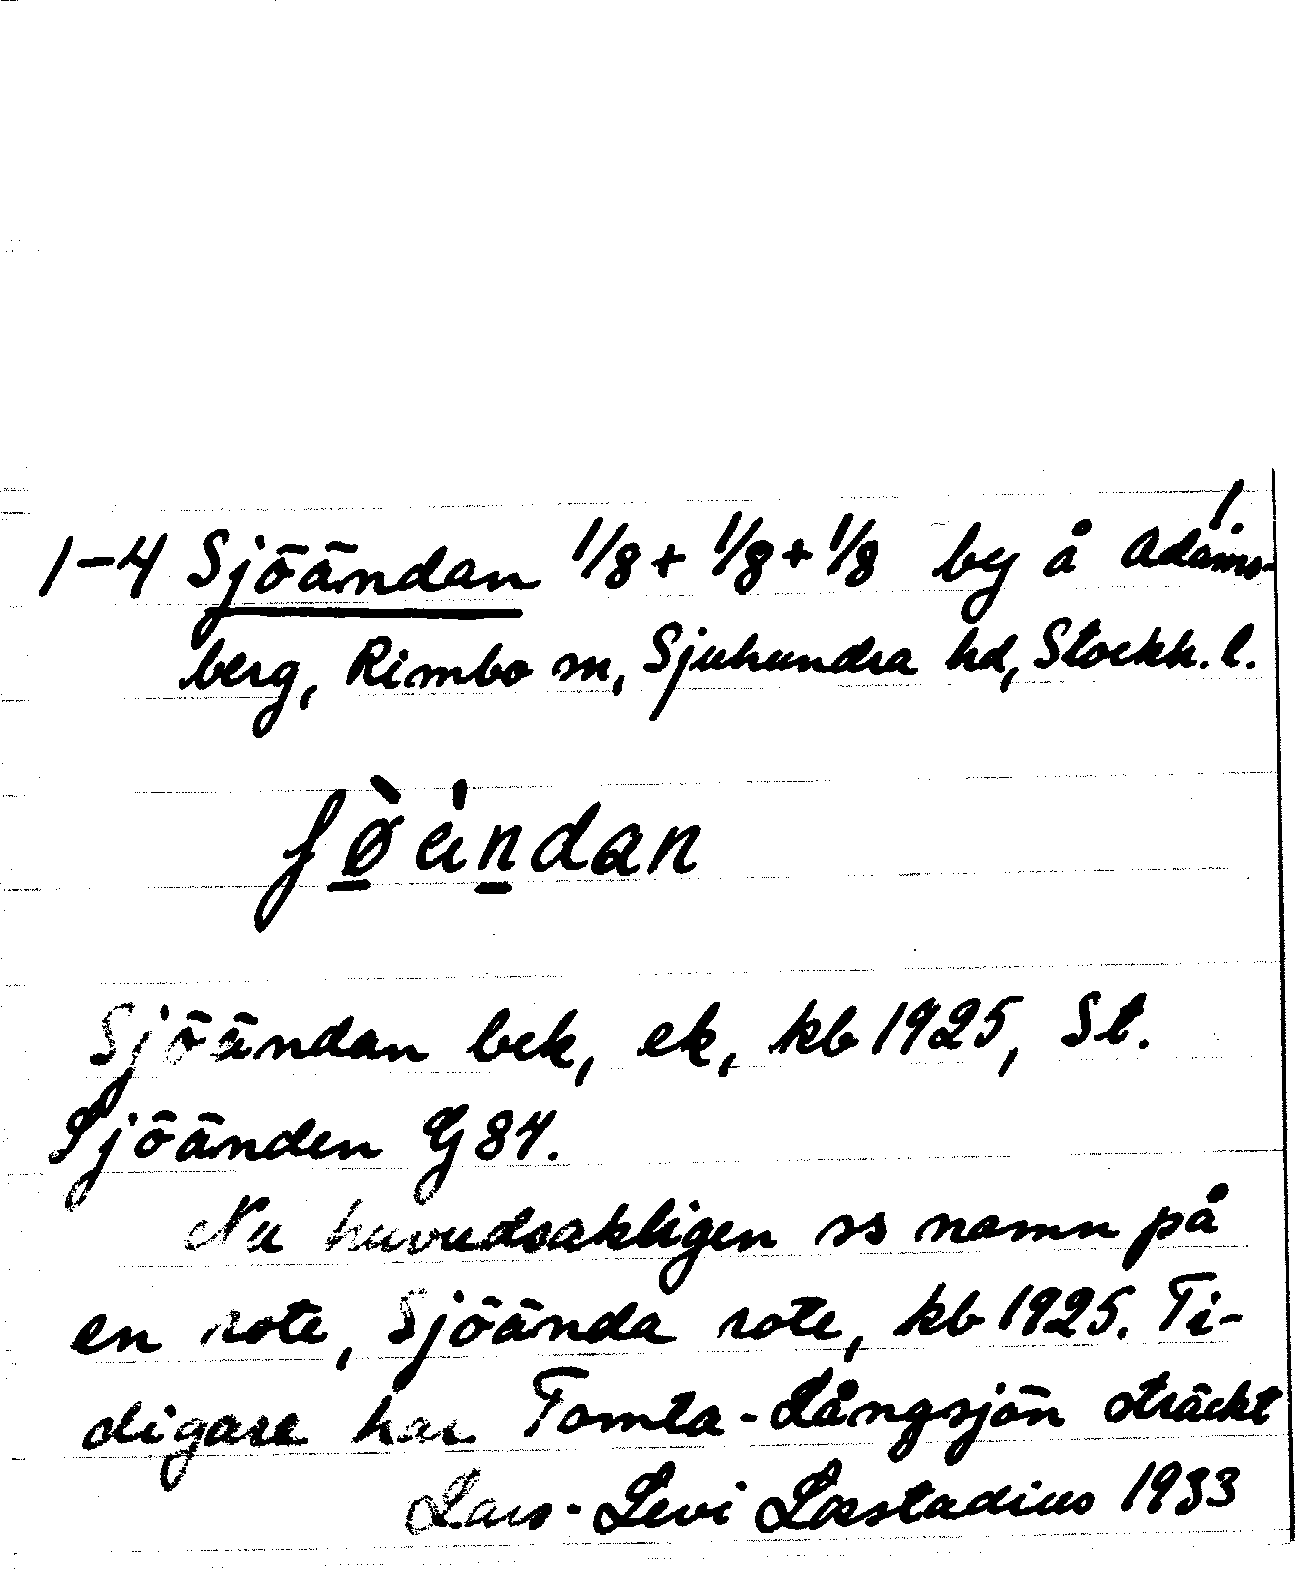 1.
1-4 Sjöändan 1/8 + 1/8 + 1/8 by å Adams-
berg, Rimbo sn, Sjuhundra hd, Stockh. l.
ʃø̀ä́ndan
Sjöändan bek, ek, kb 1925, St.
Sjöänden G 84.
Nu huvudsakligen ss namn på
en rote, Sjöända rote, kb 1925. Ti-
digare har Tomta-Långsjön sträckt
Lars-Levi Læstadius 1933